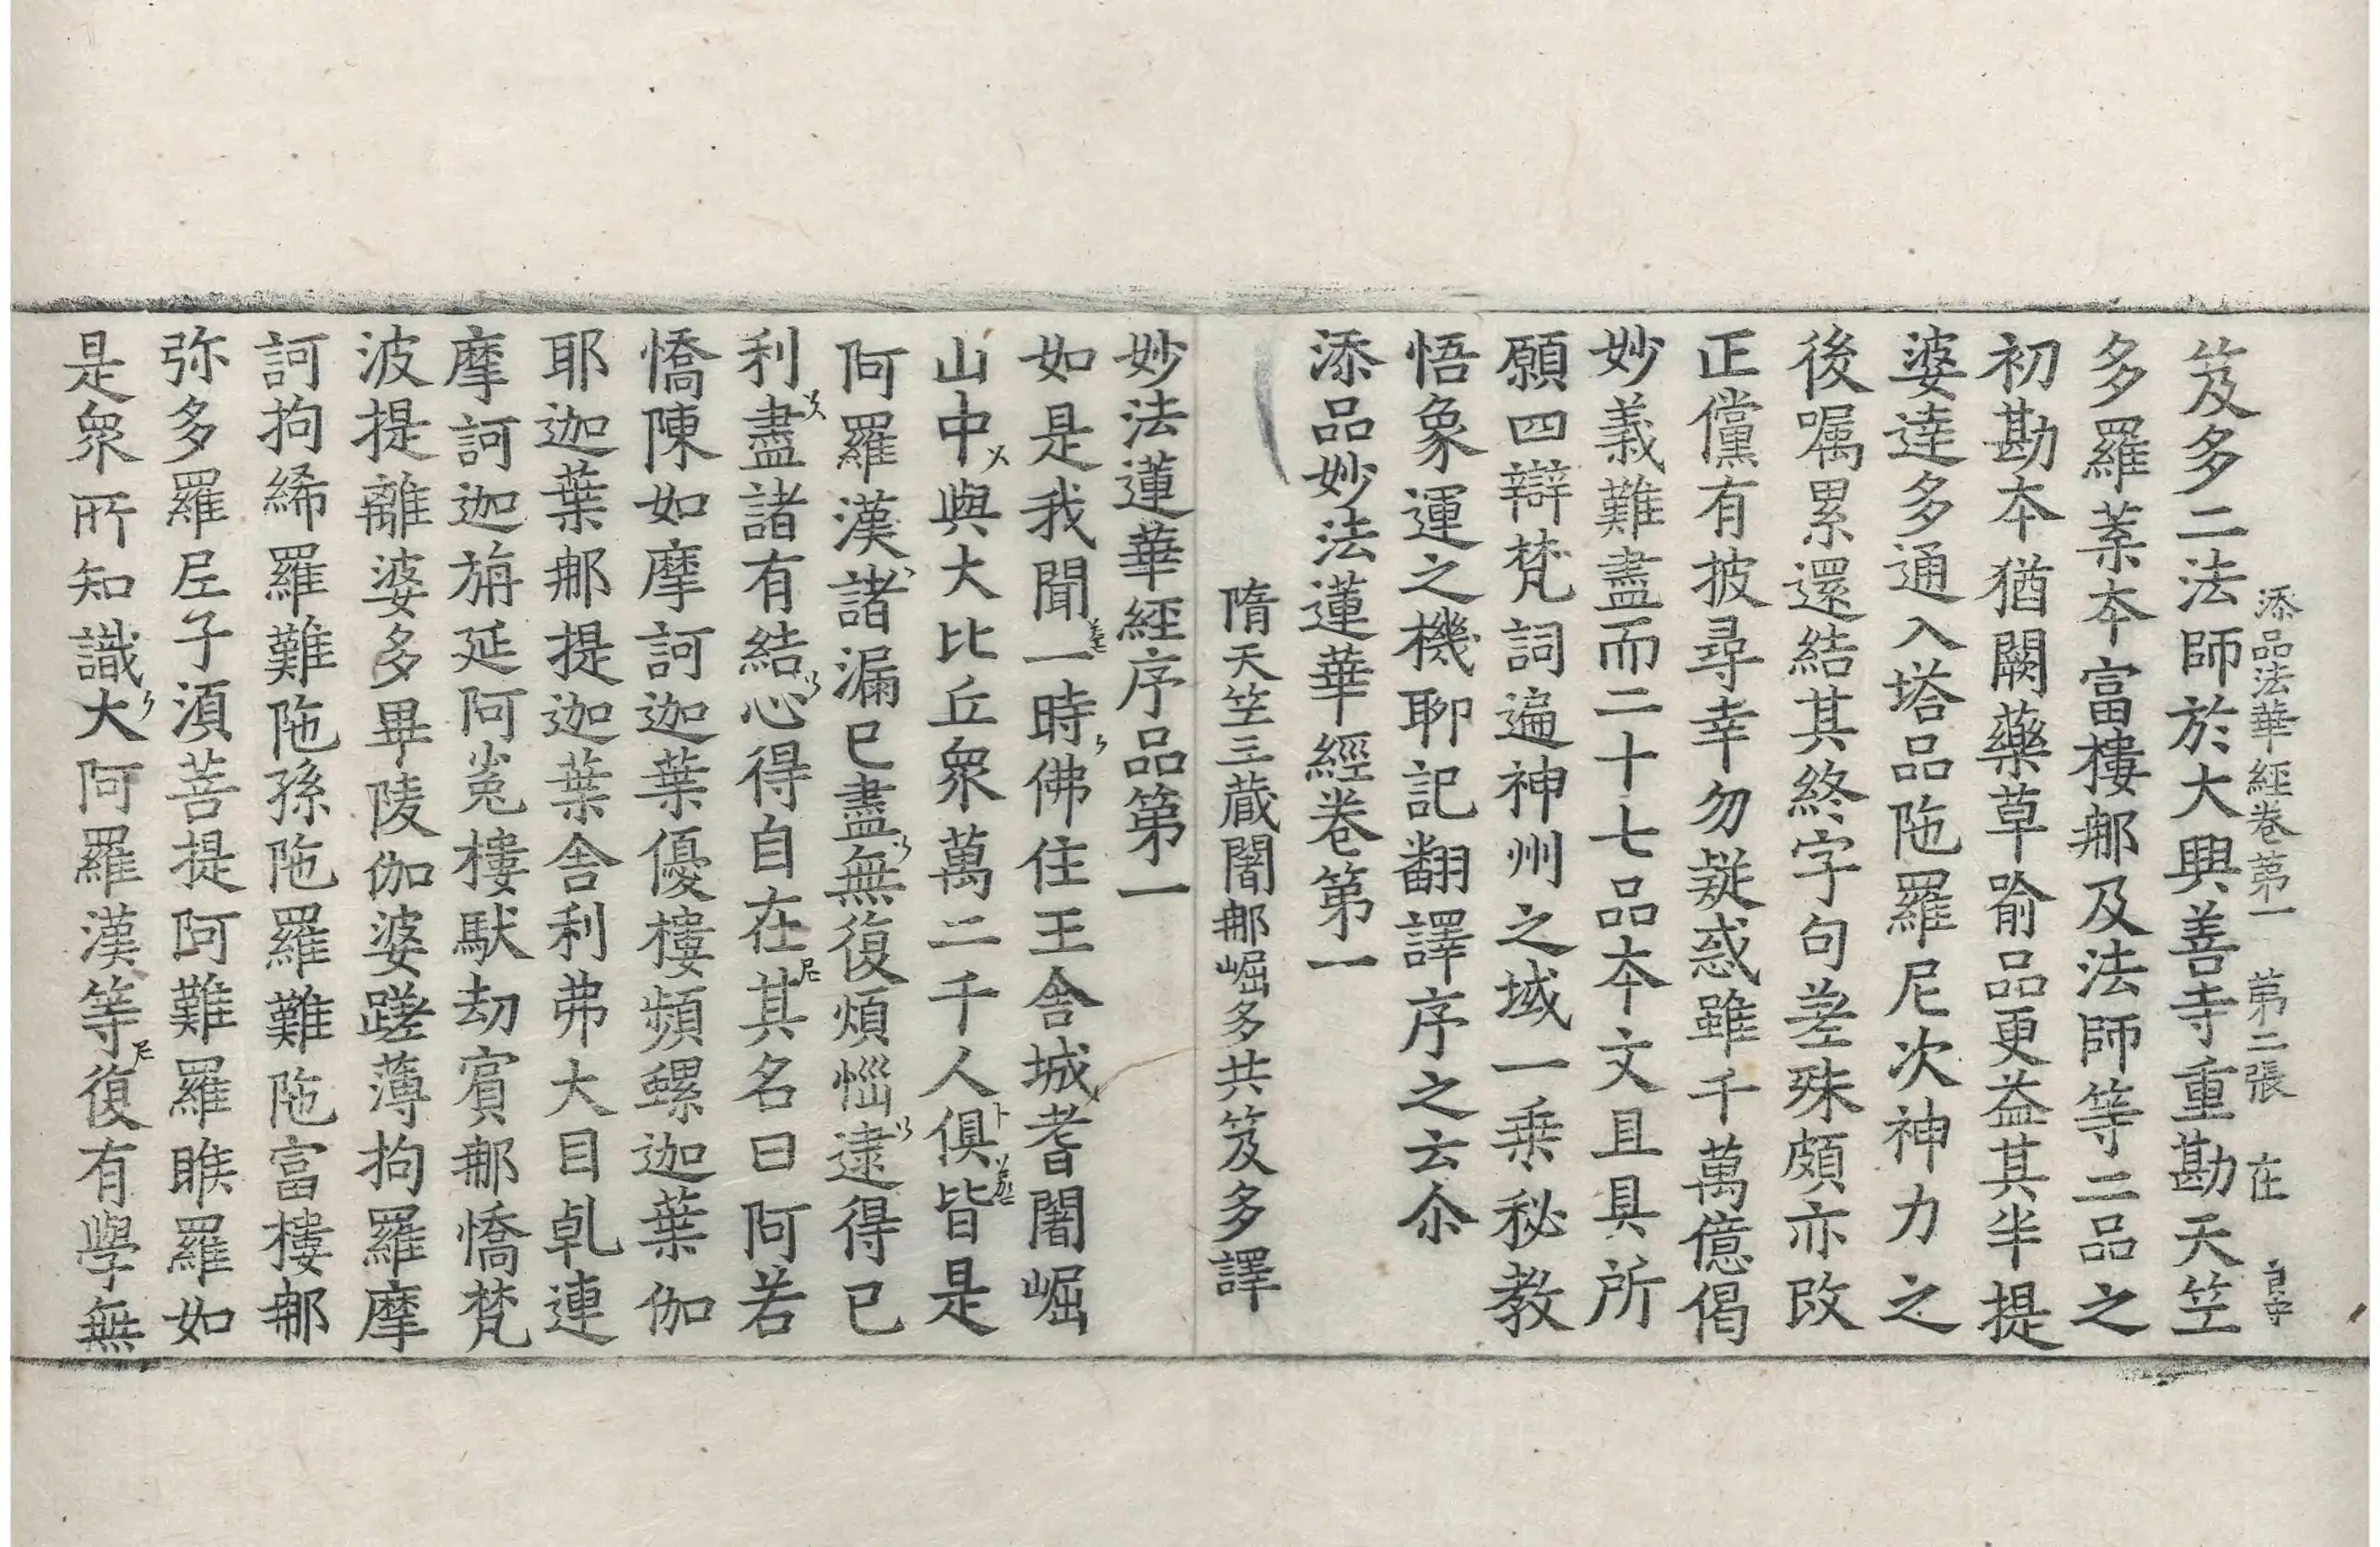 添品法華經卷第一 第二張 在
笈多二法師於大興善寺重勘天竺
多羅葉本富樓那及法師等二品之
初勘本猶闕藥草喻品更益其半提
婆達多通入塔品陁羅尼次神力之
後嘱累還結其終字句差殊頗亦改
正儻有披尋幸勿疑惑雖千萬億偈
妙義難盡而二十七品本文且具所
願四辯梵詞遍神州之域一乗秘教
悟象運之機聊記翻譯序之云尒
添品妙法蓮華經卷第一
隋天竺三藏闍那崛多共笈多譯
妙法蓮華經序品第一
如是我聞一時佛住王舍城耆闍崛
山中與大比丘衆萬二千人俱皆是
阿羅漢諸漏已盡無復煩惱逮得已
利盡諸有結心得自在其名曰阿若
憍陳如摩訶迦葉優樓頻螺迦葉伽
耶迦葉那提迦葉舍利弗大目乹連
摩訶迦旃延阿㝹樓馱劫賓那憍梵
波提離婆多畢陵伽婆蹉薄拘羅摩
訶拘絺羅難陁孫陁羅難陁富樓那
弥多羅尼子湏菩提阿難羅睺羅如
是衆所知識大阿羅漢等復有學無